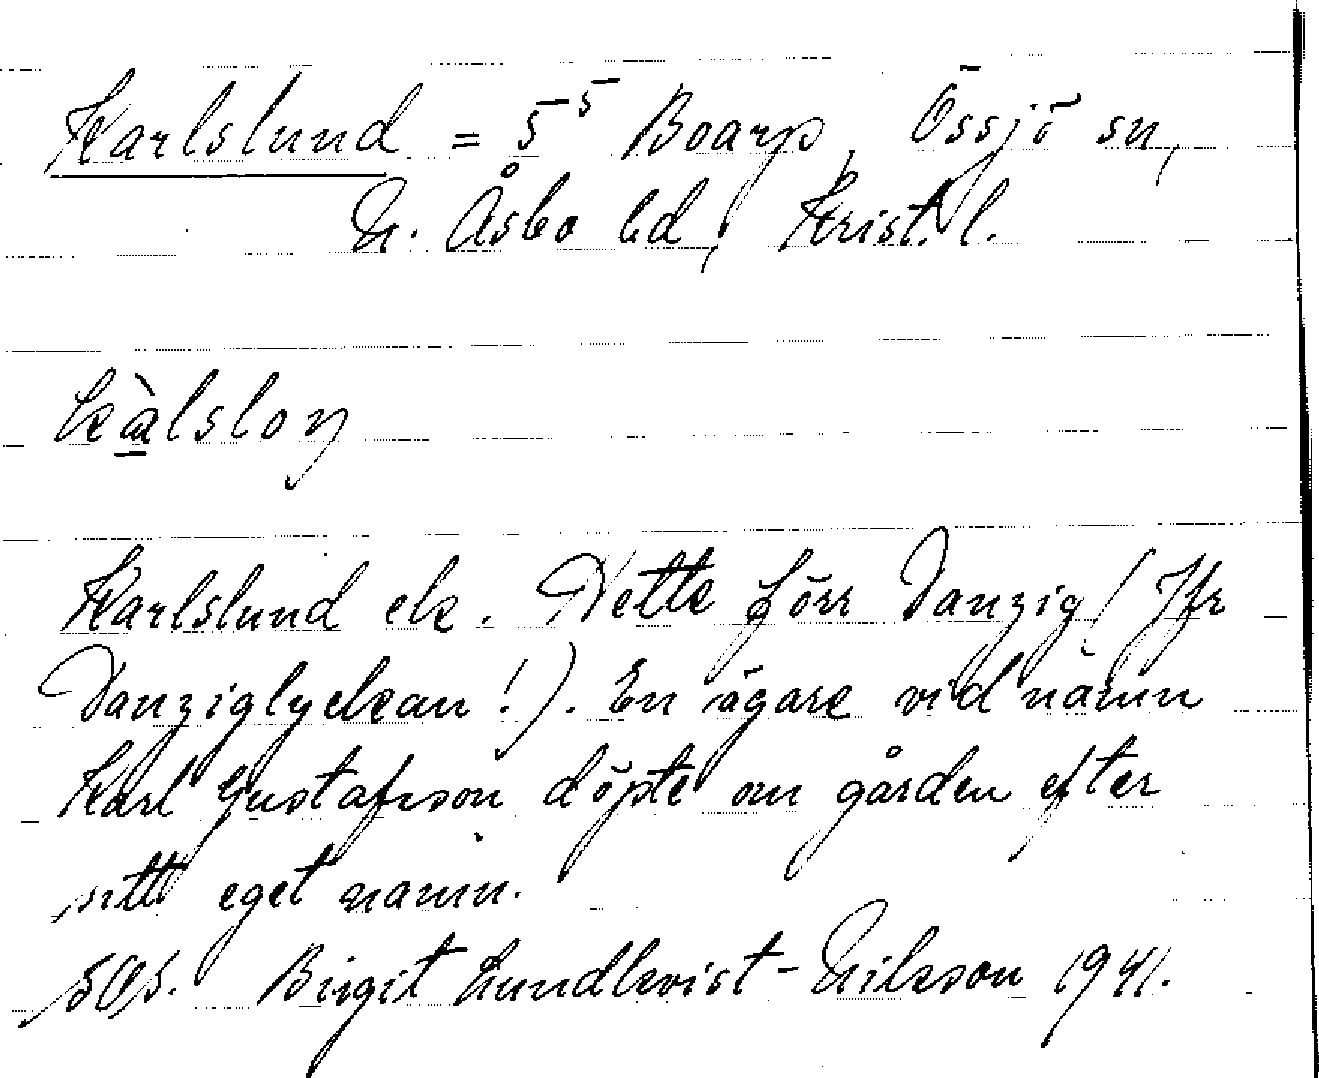 Karlslund = 5⁵ Boarp, Össjö sn,
N. Åsbo hd, Krist. l.
kàlsloŋ
Karlslund ek. Dette förr Danzig (Jfr
Danziglyckan!). En ägare vid namn
Karl Gustafsson döpte om gården efter
sitt eget namn.
SOS. Birgit Lundkvist-Nilsson 1941.